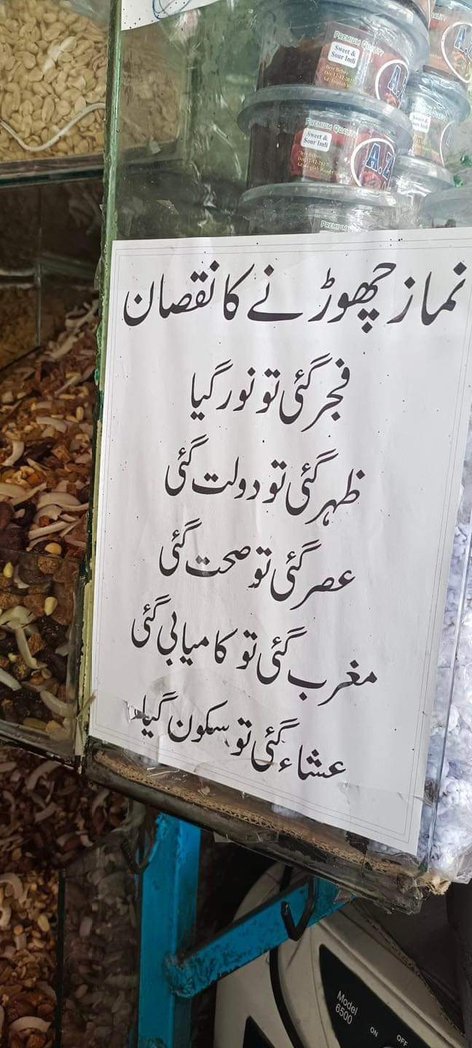 PREMIUM QUALITY
Sweet &
Sour Imli
A.Z
PREMIUM QUALITY
Sweet &
Sour Imli
A.Z
PREMIUM
نماز چھوڑنے کا نقصان
فجر گئی تو نور گیا
ظہر گئی تو دولت گئی
عصر گئی تو صحت گئی
مغرب گئی تو کامیابی گئی
عشاء گئی تو سکون گیا
Model
6500
ON
OFF